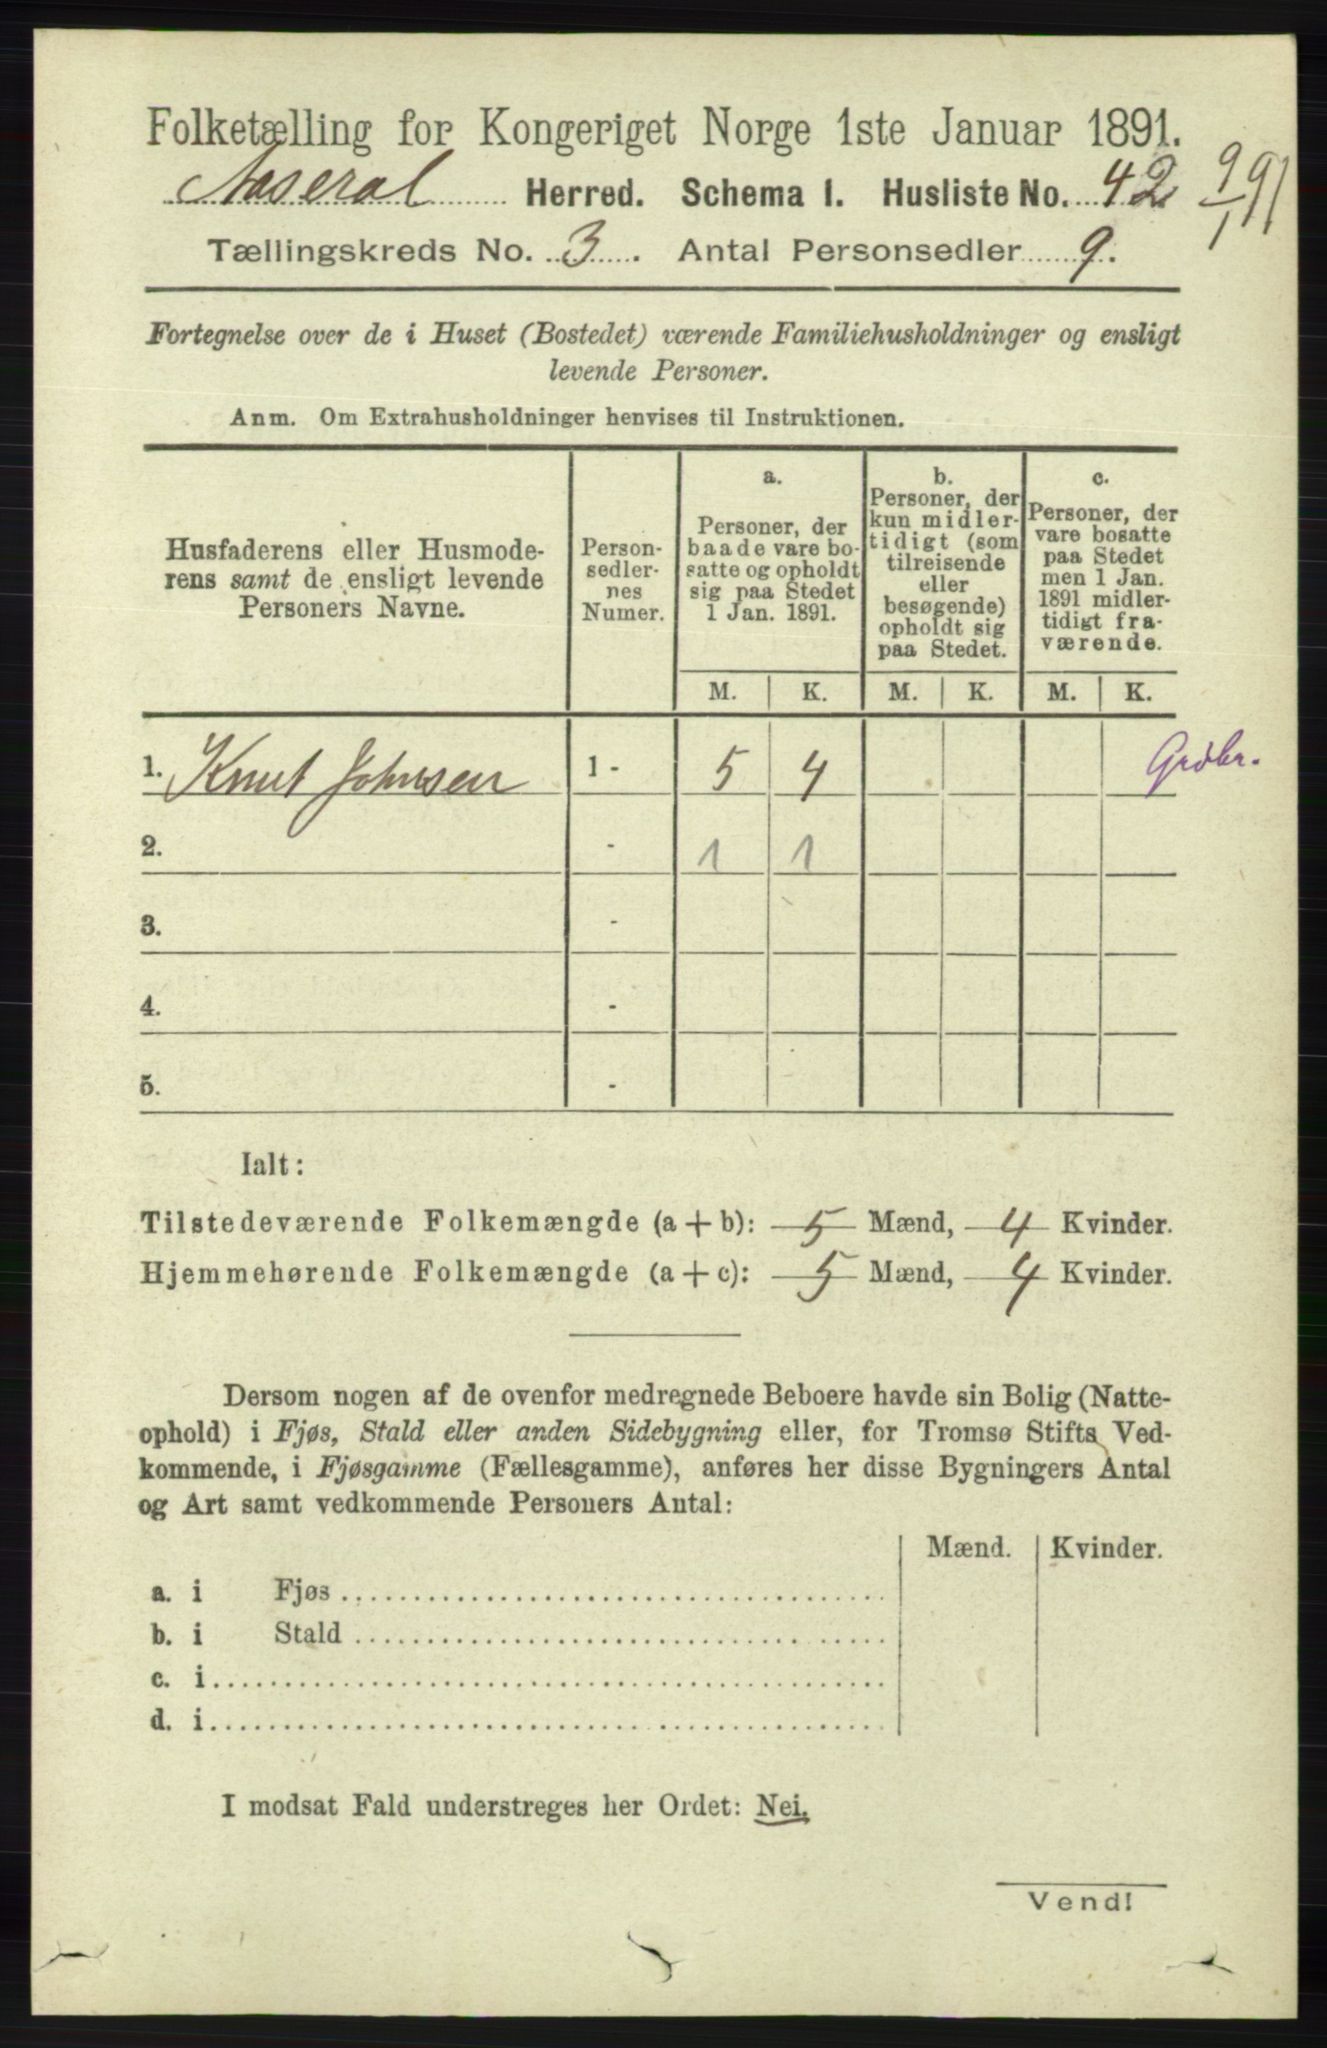 Folketælling for Kongeriget Norge 1ste Januar 1891.
Aaseral Herred. Schema I. Husliste No. 42 9/1 91
Tællingskreds No. 3. Antal Personsedler 9.
Fortegnelse over de i Huset (Bostedet) værende Familiehusholdninger og ensligt
levende Personer.
Anm. Om Extrahusholdninger henvises til Instruktionen.
Husfaderens eller Husmode-
rens samt de ensligt levende
Personers Navne.
Person-
sedler-
nes
Numer.
a.
Personer, der
baade vare bo-
satte og opholdt
sig paa Stedet
1 Jan. 1891.
b.
Personer, der
kun midler-
tidigt (som
tilreisende
eller
besøgende)
opholdt sig
paa Stedet.
c.
Personer, der
vare bosatte
paa Stedet
men 1 Jan.
1891 midler-
tidigt fra-
værende.
M. K. M. K. M. K.
1. Knut Johnsen 1 - 5 4 Grdbr.
2. - 1 1
3. -
4. -
5. -
Ialt:
Tilstedeværende Folkemængde (a + b): 5 Mænd, 4 Kvinder.
Hjemmehørende Folkemængde (a + c): 5 Mænd, 4 Kvinder.
Dersom nogen af de ovenfor medregnede Beboere havde sin Bolig (Natte-
ophold) i Fjøs, Stald eller anden Sidebygning eller, for Tromsø Stifts Ved-
kommende, i Fjøsgamme (Fællesgamme), anføres her disse Bygningers Antal
og Art samt vedkommende Personers Antal:
Mænd. Kvinder.
a. i Fjøs
b. i Stald
c. i
d. i
I modsat Fald understreges her Ordet: Nei.
Vend!